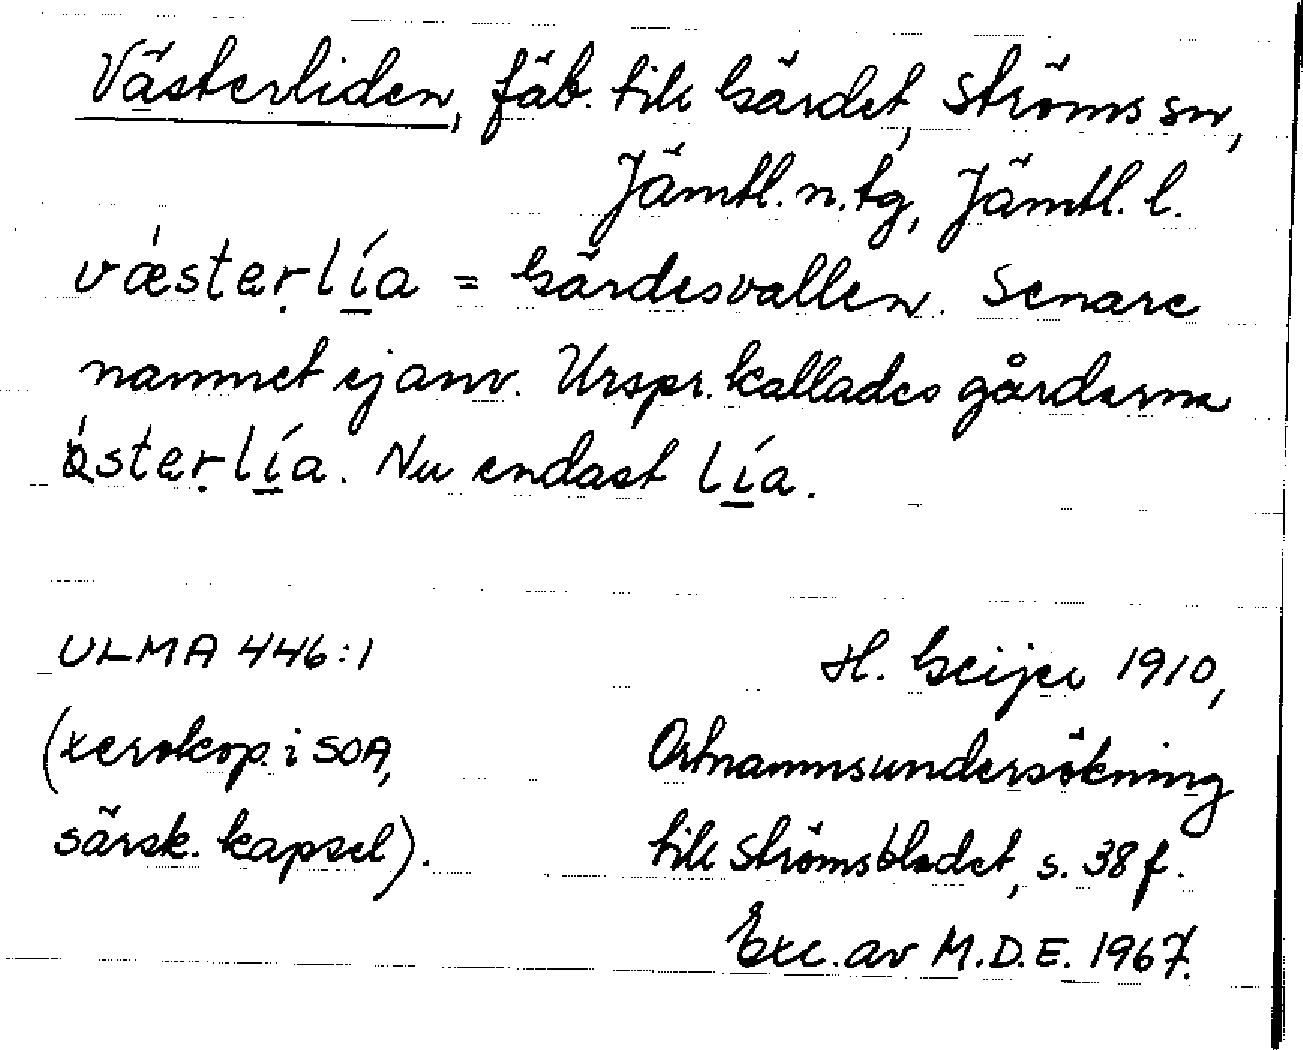 Västerliden, fäb. till Gärdet, Ströms sn,
Jämtl. n. tg, Jämtl. l.
væ̀sterlía = Gärdesvallen. Senare
namnet ej anv. Urspr. kallades gårdarna
òsterlía. Nu endast lía.
ULMA 446:1
H. Geijer 1910,
(xerokop. i SOA,
Ortnamnsundersökning
särsk. kapsel).
till Strömsbladet, s. 38 f.
Exc. av M.D.E. 1967.